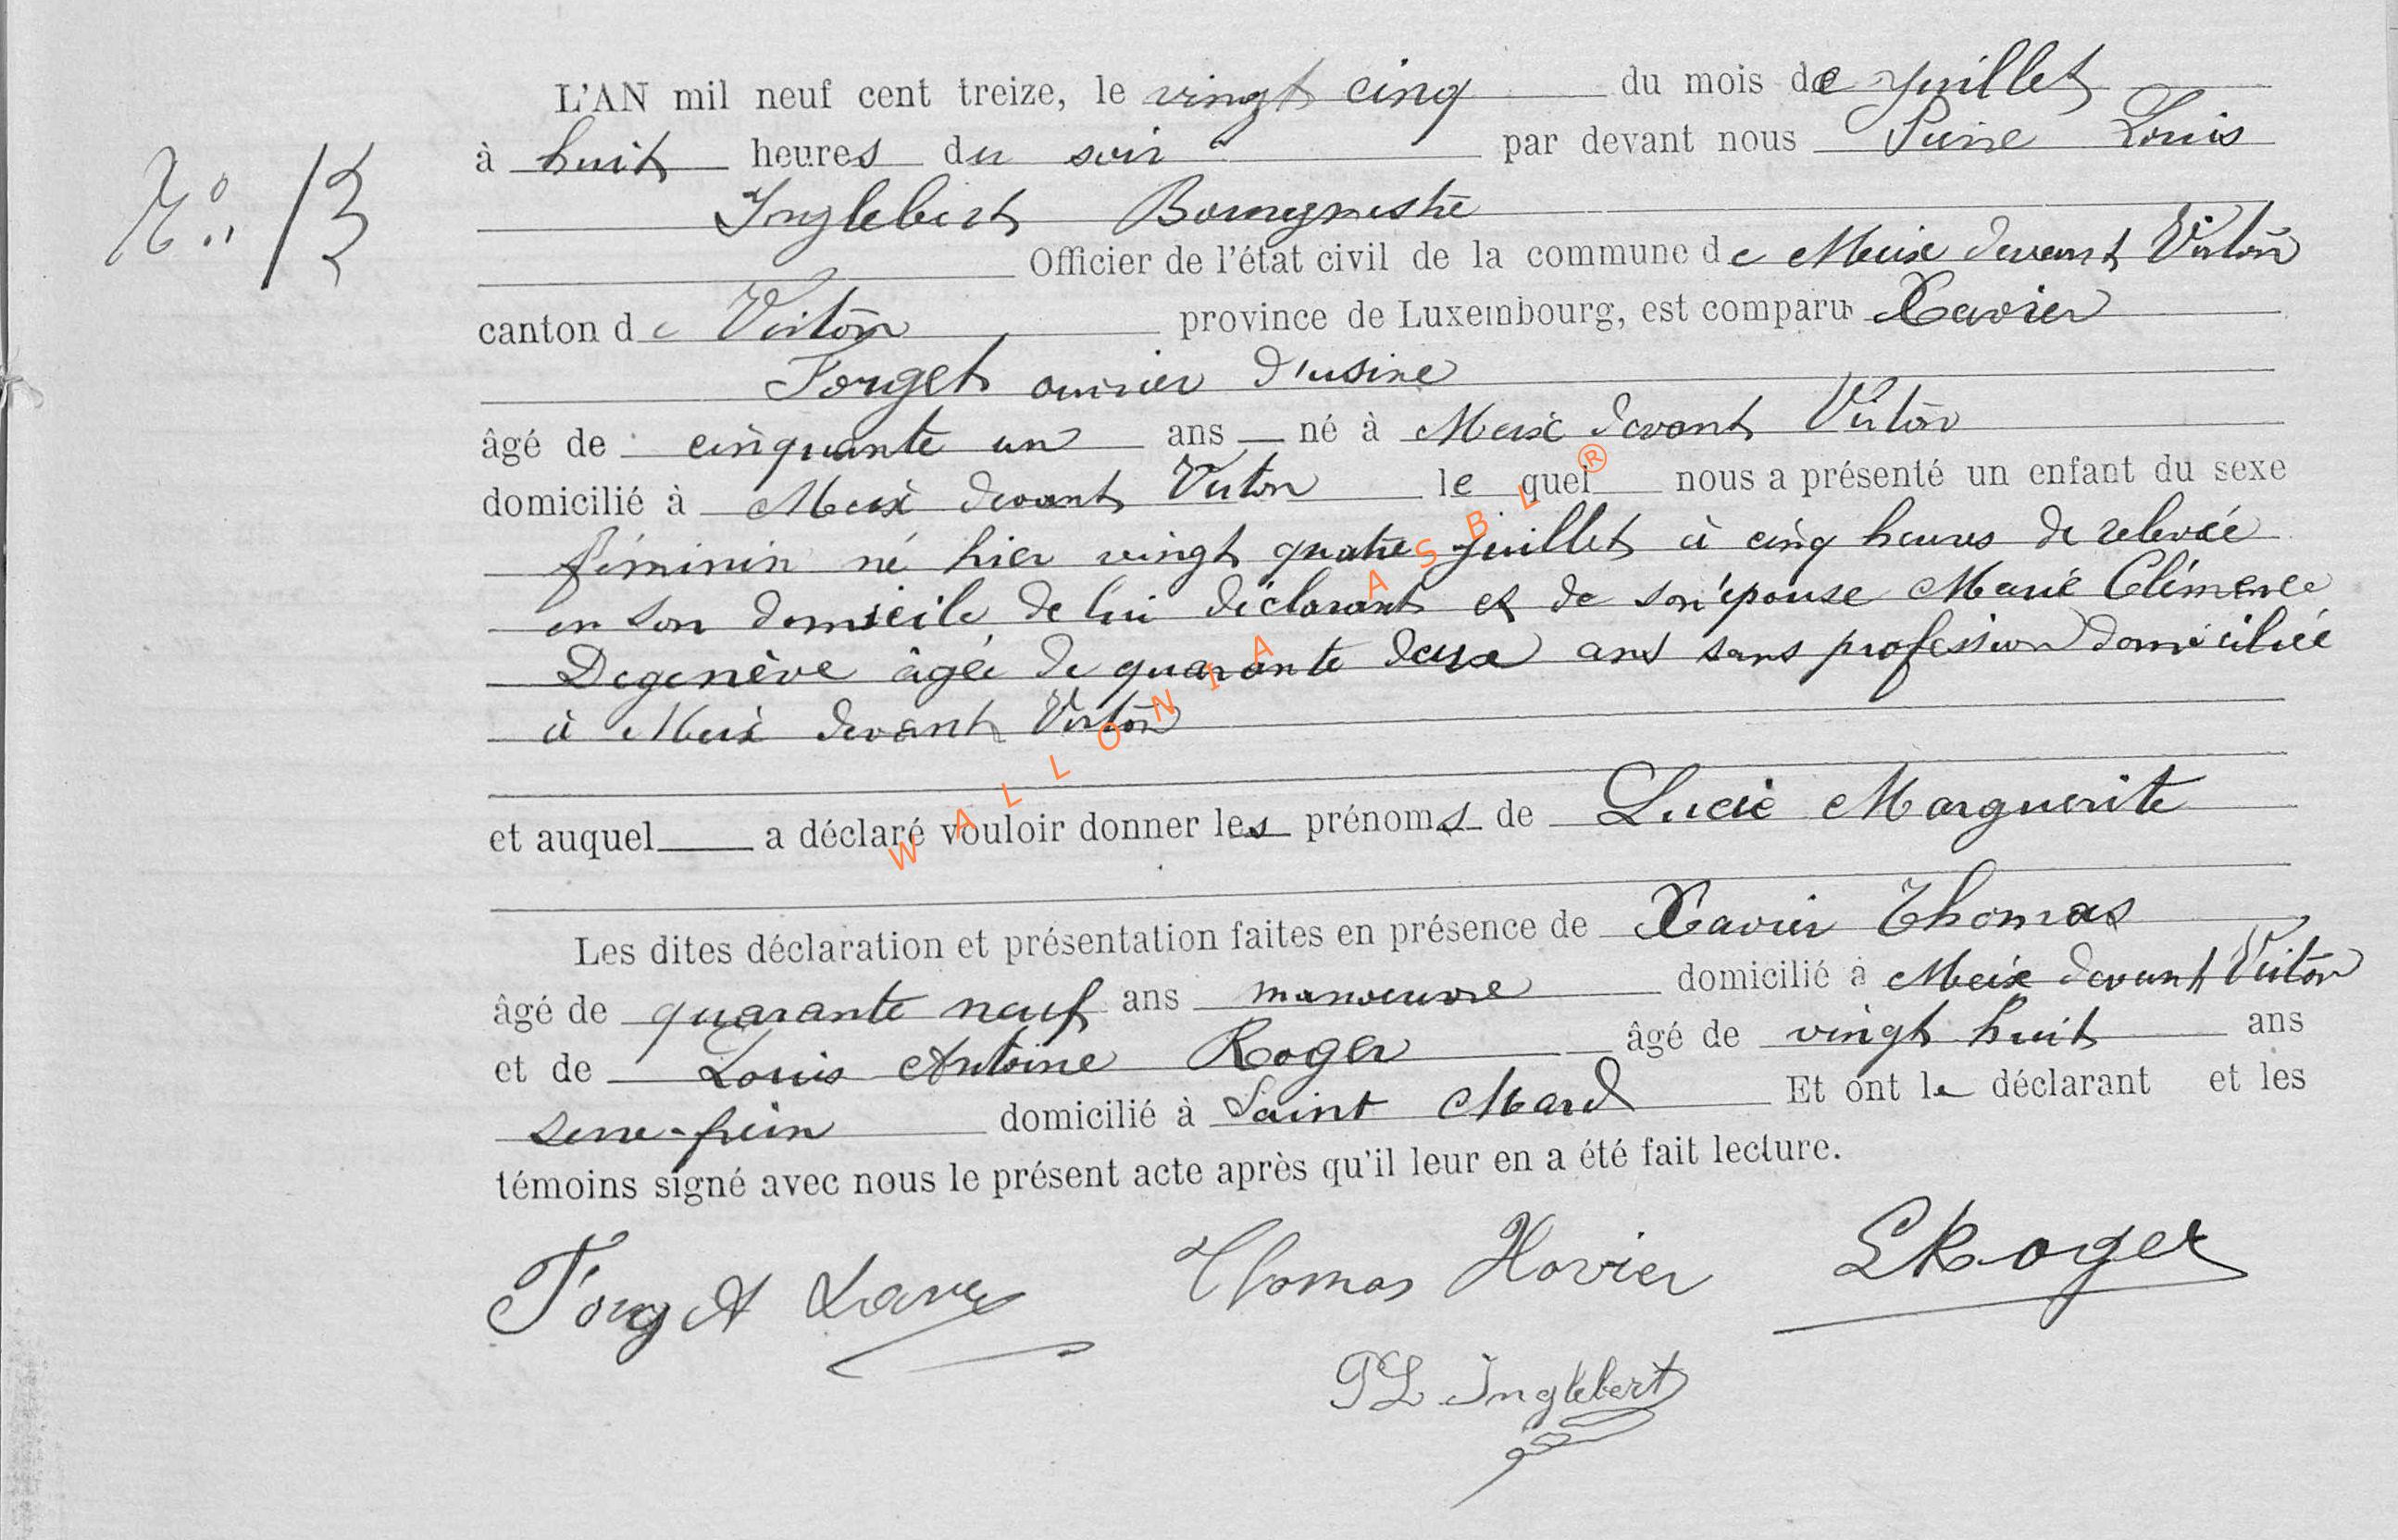 N° 13
L'AN mil neuf cent treize, le vingt cinq du mois de Juillet
à huit heures du soir par devant nous Pierre Louis
Inglebert Bourgmestre
Officier de l'état civil de la commune de Meix devant Virton
canton de Virton province de Luxembourg, est comparu Xavier
Forget ouvrier d'usine
âgé de cinquante un ans né à Meix devant Virton
domicilié à Meix devant Virton le quel nous a présenté un enfant du sexe
féminin né hier vingt quatre Juillet à cinq heures de relevée
en son domicile de lui déclarant et de son épouse Marie Clémence
Degenève âgée de quarante deux ans sans profession domiciliée
à Meix devant Virton
et auquel a déclaré vouloir donner les prénoms de Lucie Marguerite
Les dites déclaration et présentation faites en présence de Xavier Thomas
âgé de quarante neuf ans manoeuvre domicilié à Meix devant Virton
et de Louis Antoine Roger âgé de vingt huit ans
serre-frein domicilié à Saint Mard Et ont le déclarant et les
témoins signé avec nous le présent acte après qu'il leur en a été fait lecture.
Forget Thomas Xavier L Roger
PL Inglebert
WALLONIA ASBL ®